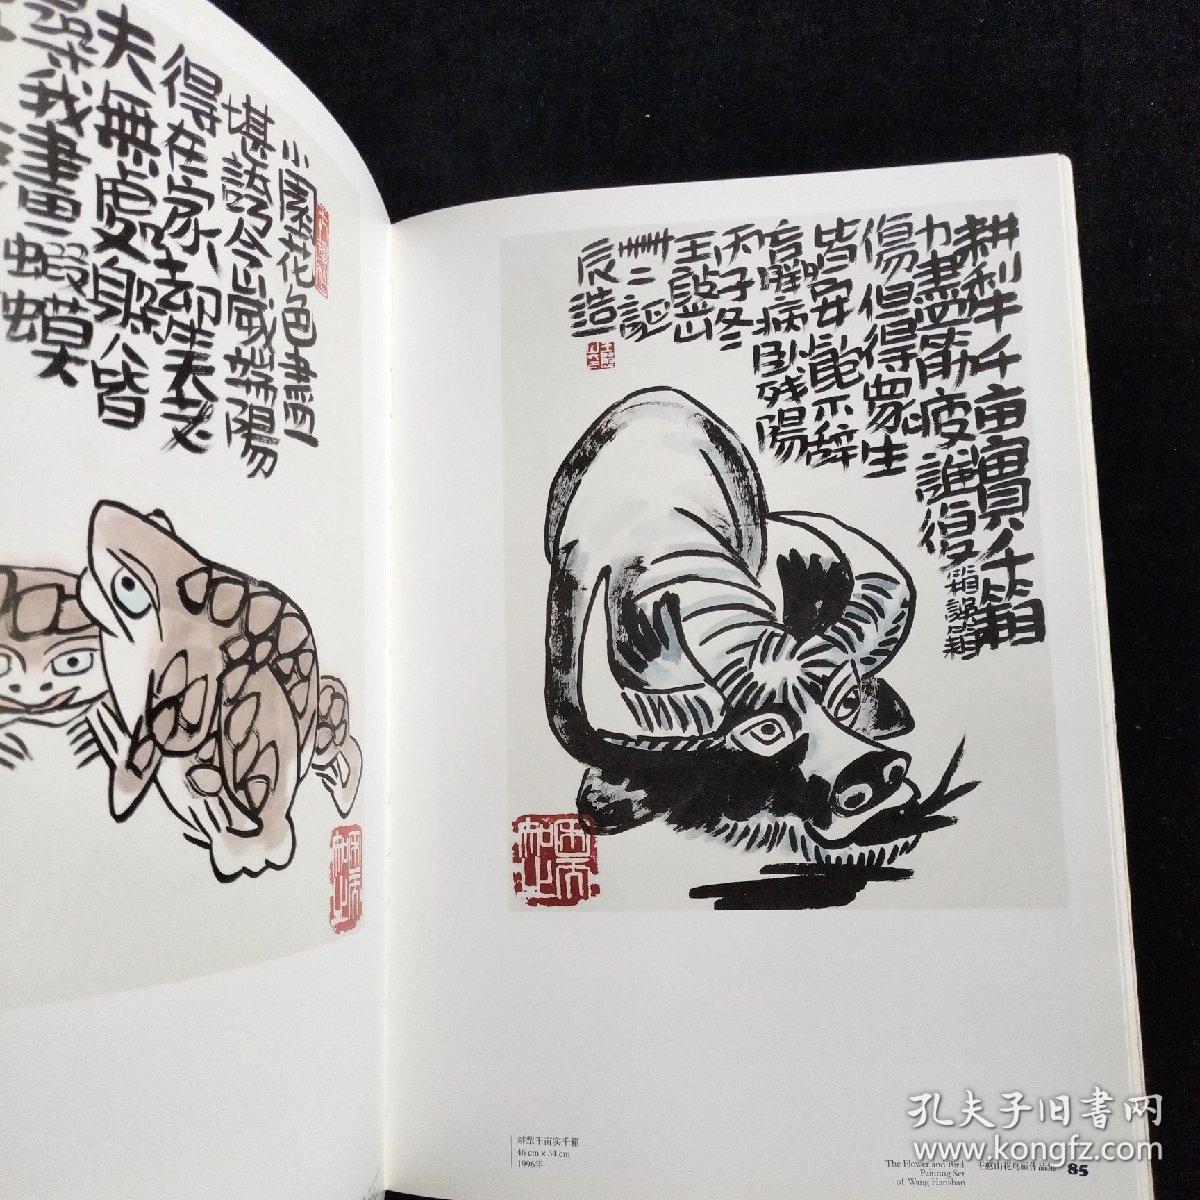 小園花色盡
堪誇今歲端陽
得在家却笑老
夫無處躲
我畫蝦蟆
耕犁千亩實千箱
力盡筋疲誰復
傷但得眾生
皆 不辭
羸病卧残陽
丙子冬
王憨山
辰造
耕犁千亩实千箱
46 cm × 34 cm
1996年
The Flower and Bird
Painting Set
of Wang Hanshan
王憨山花鸟画作品集
85
孔夫子旧书网
www.kongfz.com